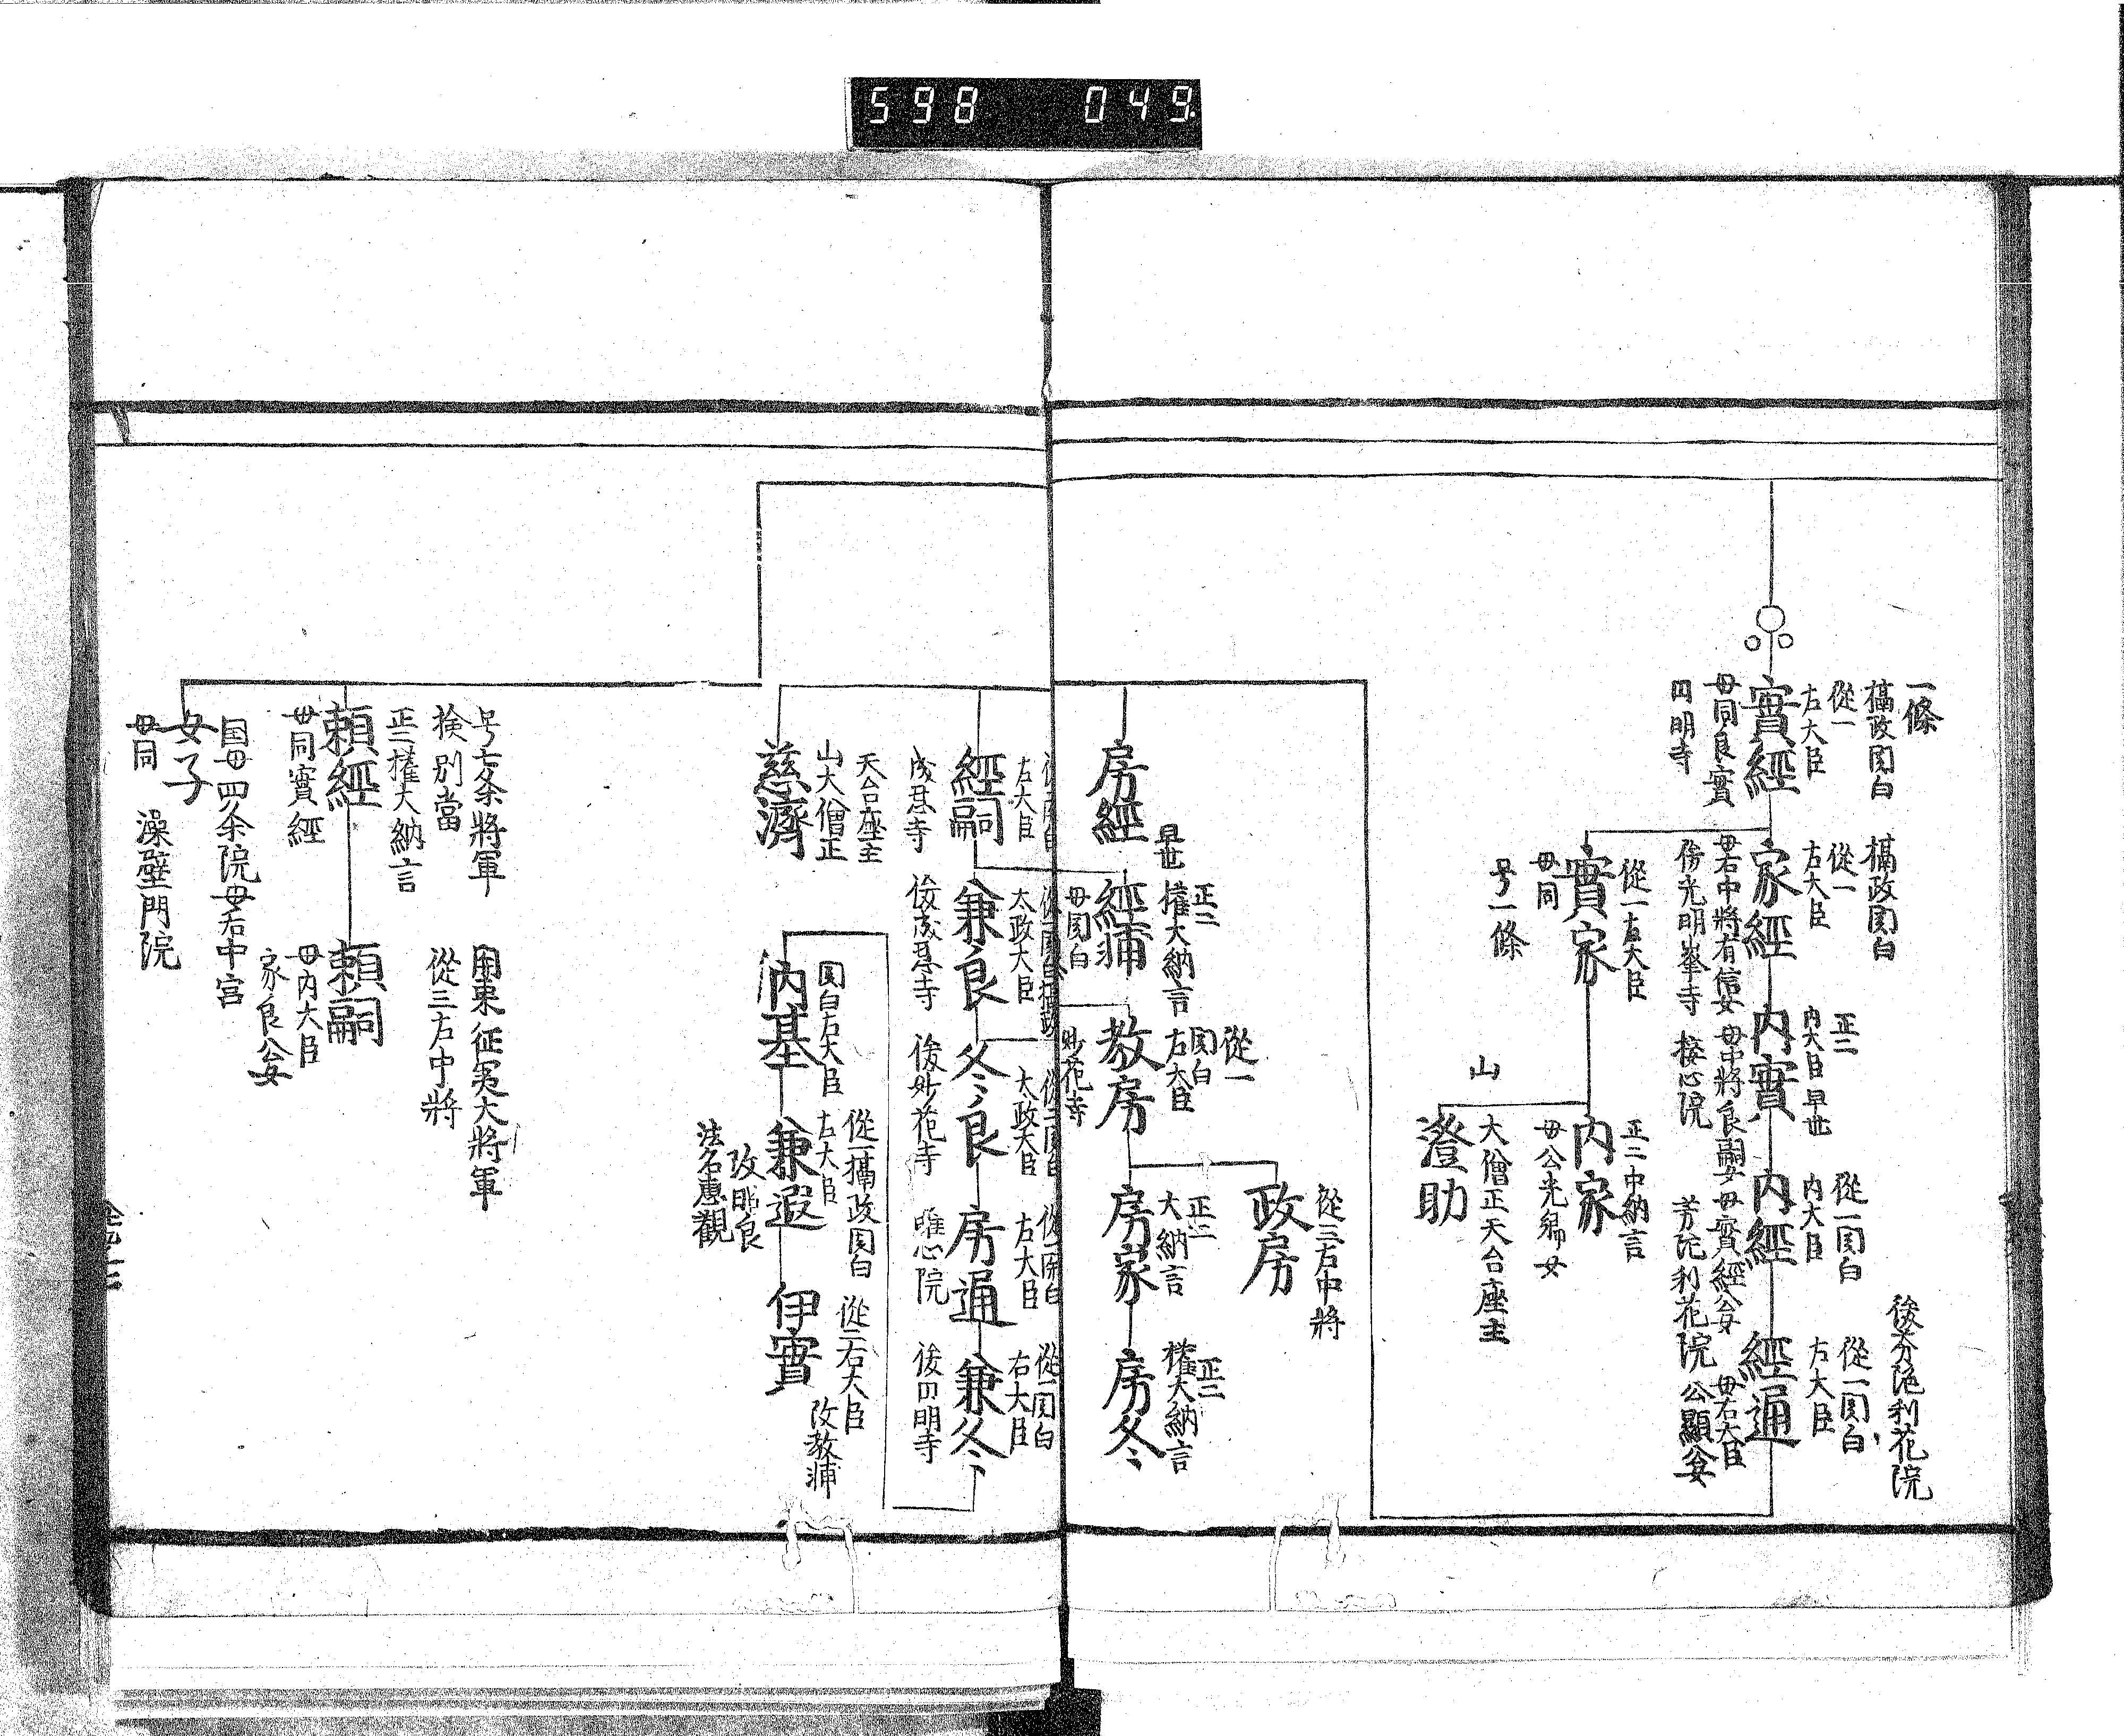 598 049
一條
攝政関白
從一
左大臣
實經
母同良實
円明寺
攝政関白
從一
左大臣
家經
母右中將有信女
後光明峯寺
正二
内大臣 早世
内實
母中將良嗣女
接心院
從一関白
内大臣
内經
母實經公女
芳陀利花院
後芬陀利花院
從一関白
左大臣
經通
母右大臣
公顯公女
從一左大臣
實家
母同
号一條
正二中納言
内家
母公光卿女
山
大僧正天台座主
澄助
早世
房經
正二
權大納言
經輔
母関白
從一
関白
左大臣
教房
妙花寺
從三右中將
政房
正二
大納言
房家
正二
權大納言
房冬
左大臣
經嗣
成恩寺
太政大臣
兼良
後成恩寺
太政大臣
冬良
後妙花寺
從一関白
左大臣
房通
唯心院
從一関白
右大臣
兼冬
後円明寺
天台座主
山大僧正
慈濟
関白左大臣
内基
從一攝政関白
左大臣
兼遐
改昭良
法名惠觀
從二右大臣
伊實
改教輔
号七条將軍
検別當
正二權大納言
頼經
母同實經
関東征夷大將軍
從三右中將
頼嗣
母内大臣
家良公女
国母四条院母后中宮
女子
母同
藻壁門院